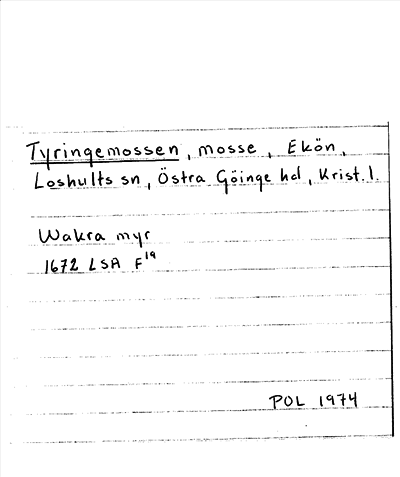 Tyringemossen, mosse, Ekön,
Loshults sn, Östra Göinge hd, Krist. l.
Wakra myr
1672 LSA F19
POL 1974